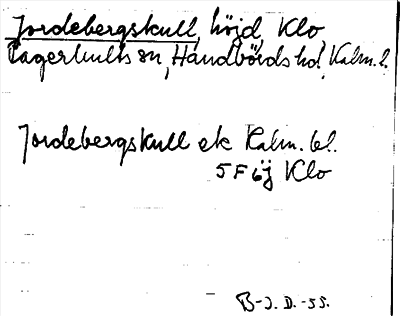 Jordebergskull, höjd, Klo
Fagerhults sn, Handbörds hd. Kalm. l.
Jordebergskull ek Kalm. bl.
5 F 6j Klo
B-J. D. -55.